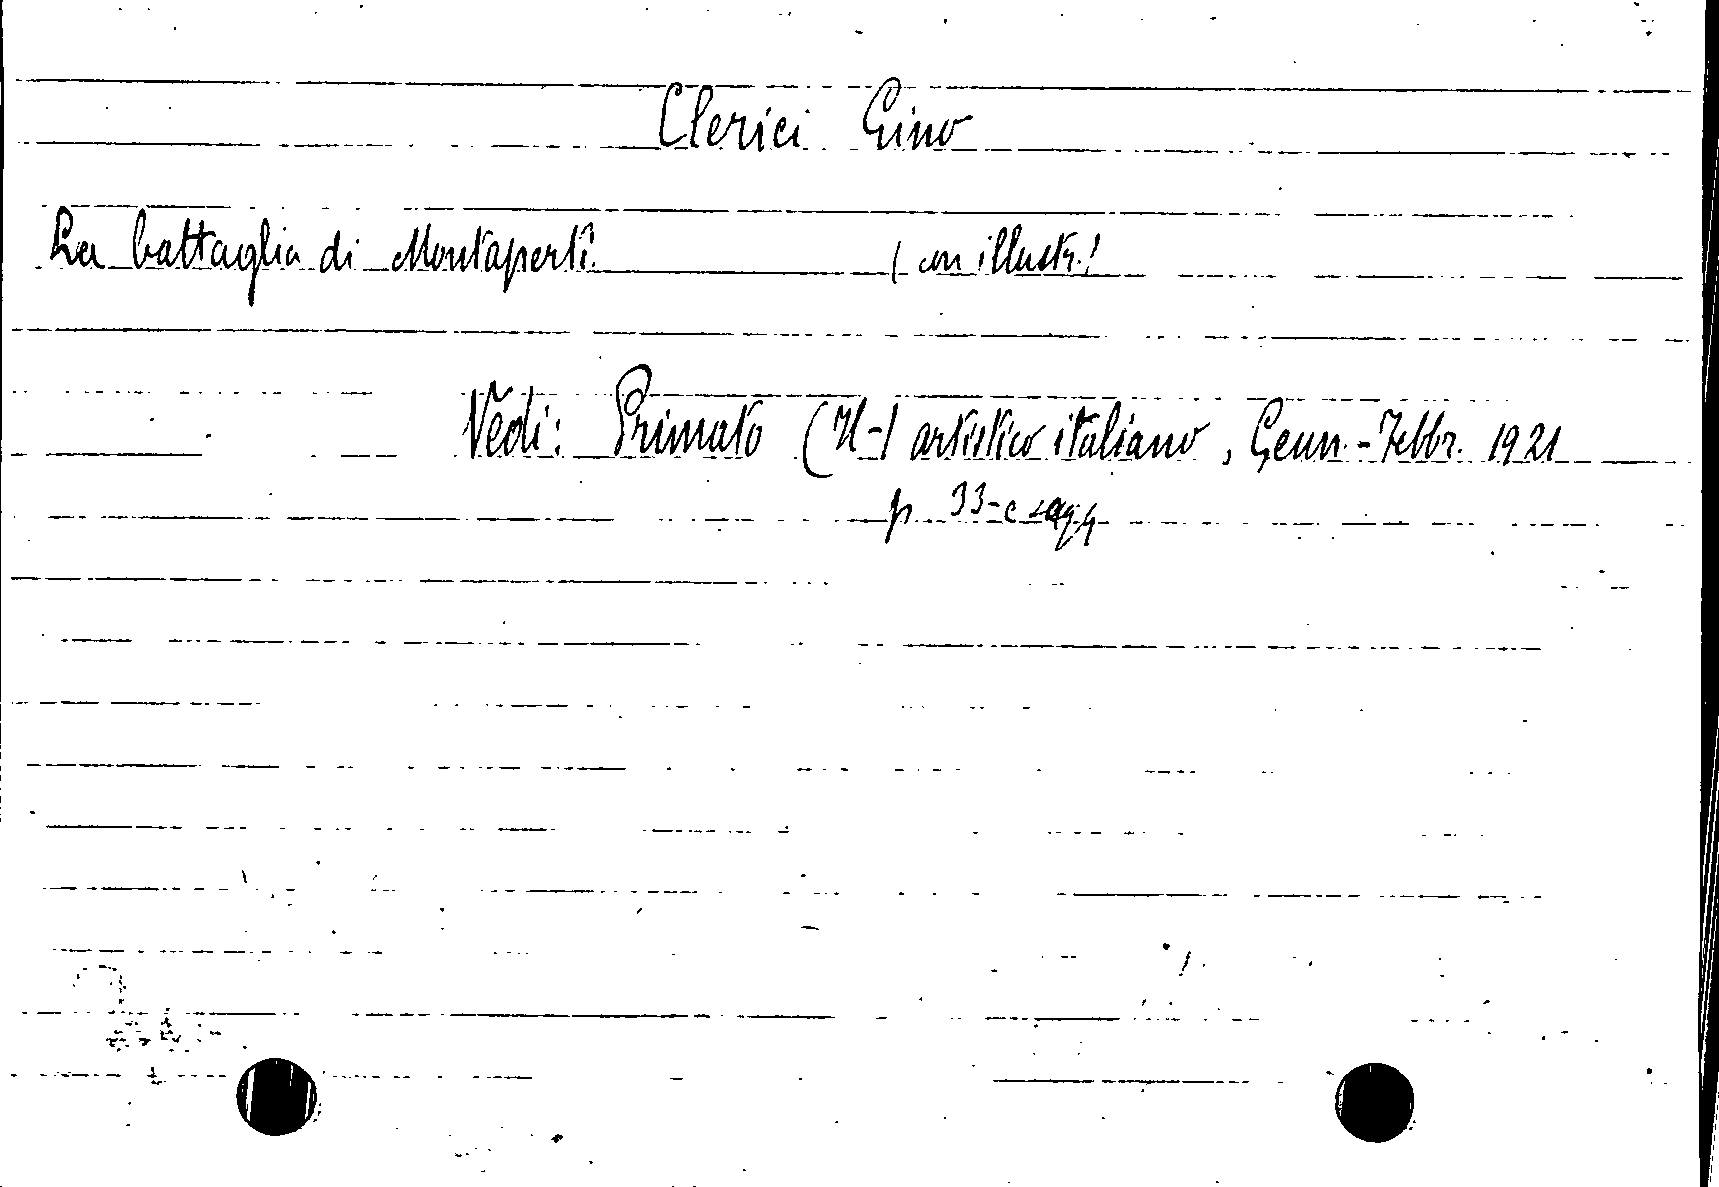 Clerici Gino
La battaglia di Montaperti. (con illustr.)
Vedi: Primato (Il-) artistico italiano, Genn.-Febbr. 1921
p 33-e sagg